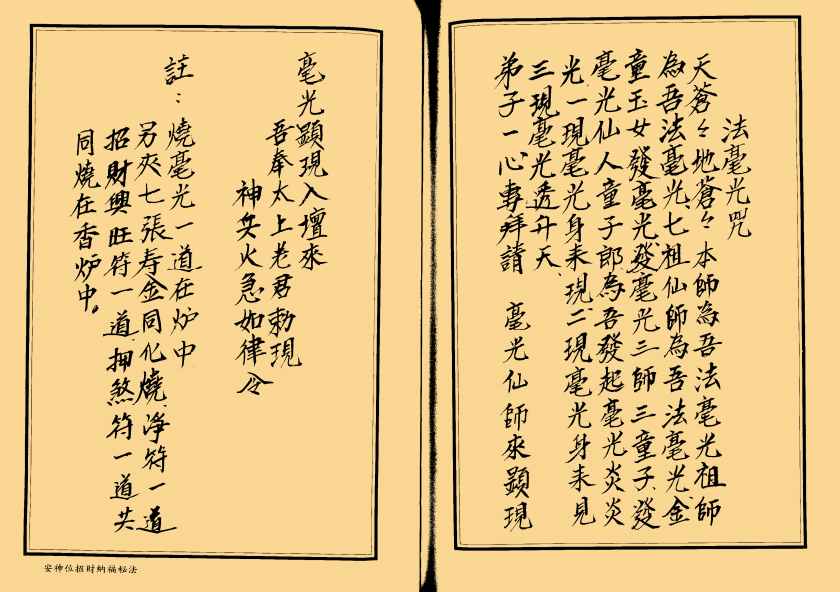 法毫光咒
天蒼々地蒼々本師為吾法毫光祖師
為吾法毫光七祖仙師為吾法毫光金
童玉女發毫光發毫光三師三童子發
毫光仙人童子郎為吾發起毫光炎炎
光一現毫光身来現二現毫光身来見
三現毫光透升天
弟子一心專拜請　毫光仙師來顕現
毫光顕現入壇來
吾奉太上老君勅現
神兵火急如律令
註：燒毫光一道在炉中
另夾七張寿金同化燒淨符一道
招財興旺符一道押煞符一道共
同燒在香炉中。
安神位招財納福秘法